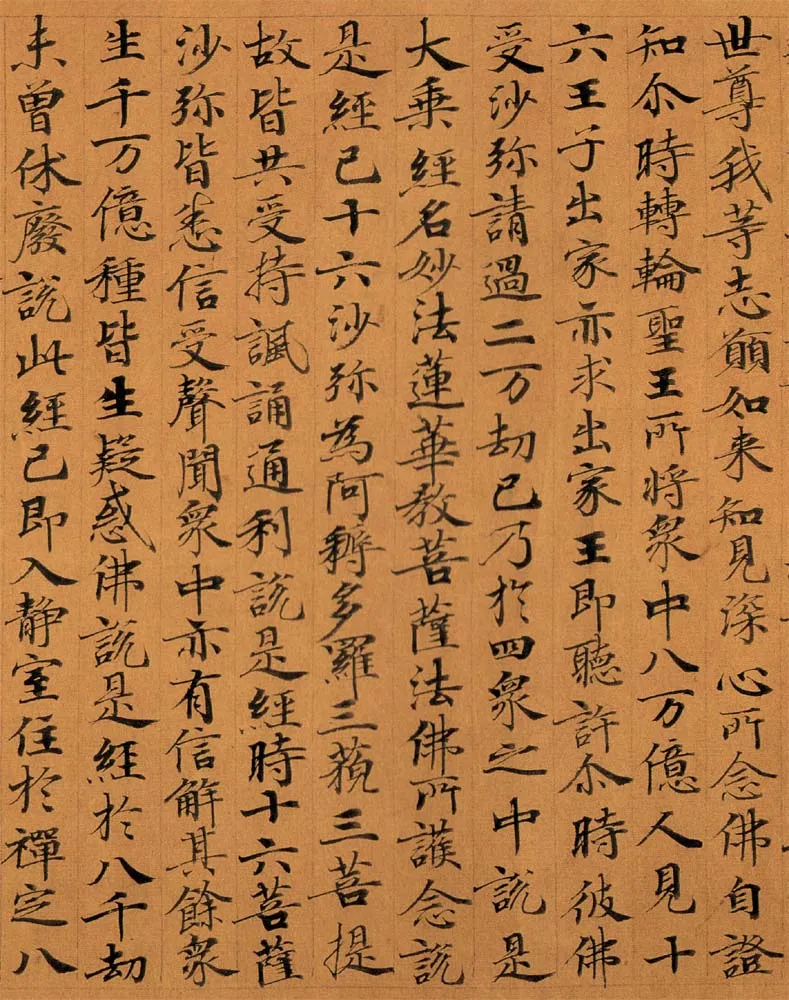 世尊我等志願如来知見深心所念佛自證
知尒時轉輪聖王所将衆中八万億人見十
六王子出家亦求出家王即聽許尒時彼佛
受沙弥請過二万劫已乃於四衆之中說是
大乗經名妙法蓮華教菩薩法佛所護念說
是經已十六沙弥為阿耨多羅三藐三菩提
故皆共受持諷誦通利說是經時十六菩薩
沙弥皆悉信受聲聞衆中亦有信解其餘衆
生千万億種皆生疑惑佛說是經於八千劫
未曾休廢說此經已即入静室住於禪定八